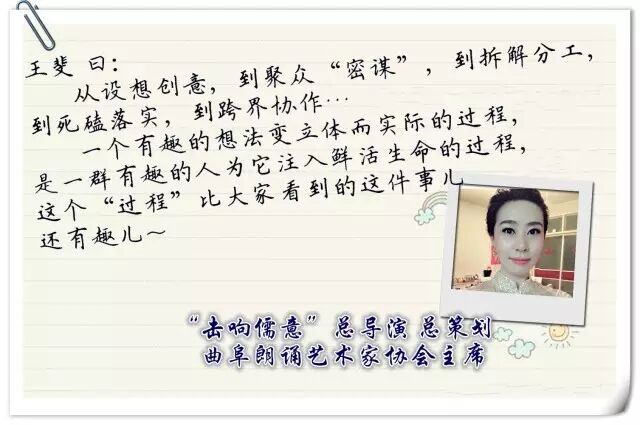 王斐 曰：
从设想创意，到聚众“密谋”，到拆解分工，
到死磕落实，到跨界协作…
一个有趣的想法变立体而实际的过程，
是一群有趣的人为它注入鲜活生命的过程，
这个“过程”比大家看到的这件事儿
还有趣儿~
“击响儒意”总导演 总策划
曲阜朗诵艺术家协会主席